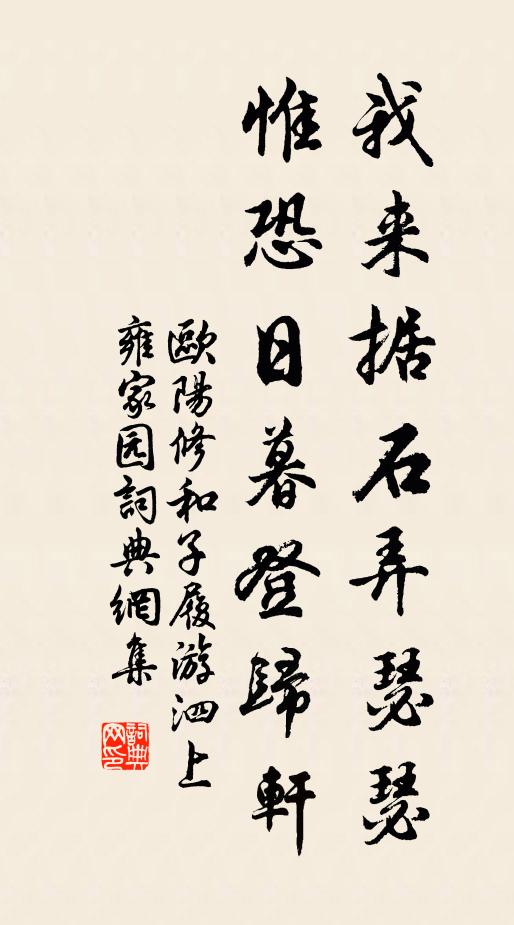 我来据石弄瑟瑟
惟恐日暮登歸軒
歐陽修和子履游泗上
雍家园詞典網集
詞典网印